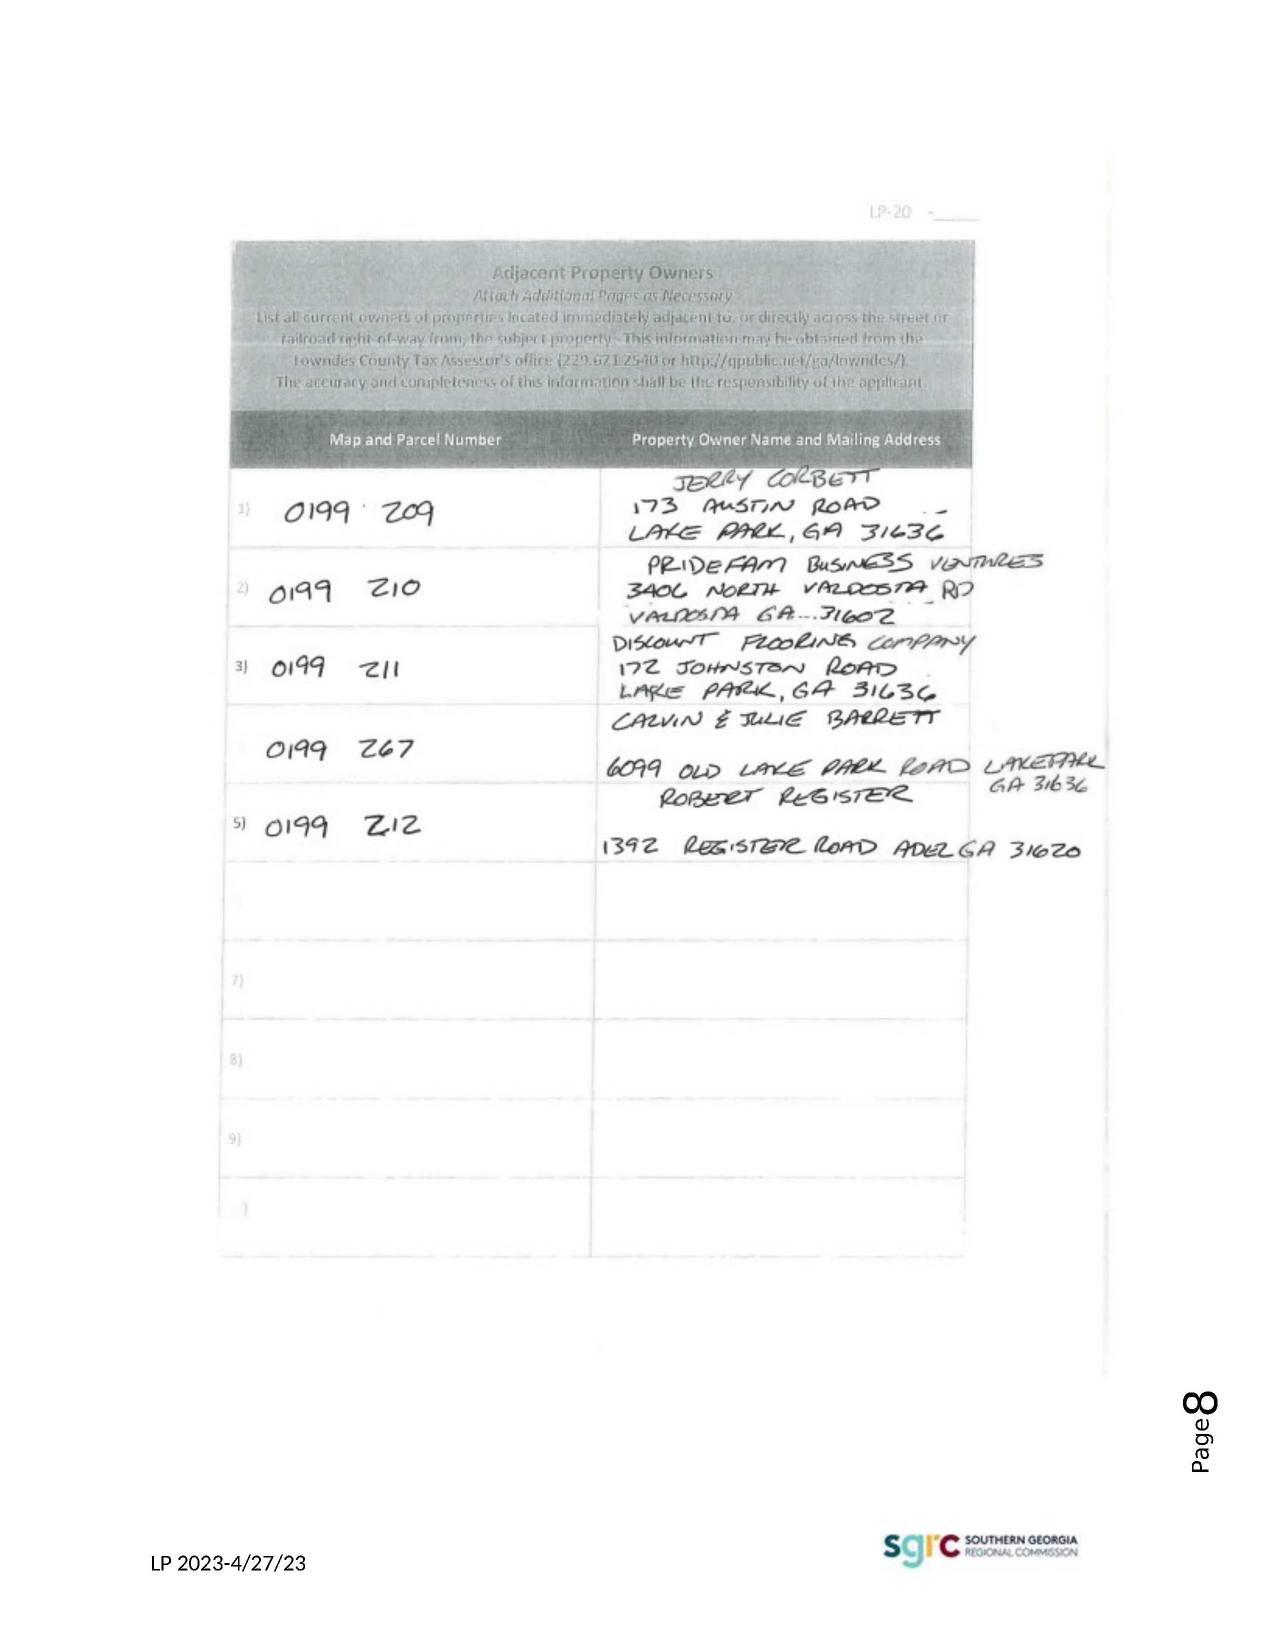 LP-20 -____
Adjacent Property Owners
Attach Additional Pages as Necessary
List all current owners of properties located immediately adjacent to, or directly across the street or
railroad right-of-way from, the subject property. This information may be obtained from the
Lowndes County Tax Assessor's office (229.671.2540 or http://qpublic.net/ga/lowndes/).
The accuracy and completeness of this information shall be the responsibility of the applicant.
Map and Parcel Number Property Owner Name and Mailing Address
1) 0199 209
JERRY CORBETT
173 AUSTIN ROAD
LAKE PARK, GA 31636
2) 0199 210
PRIDEFAM BUSINESS VENTURES
3406 NORTH VALDOSTA RD
VALDOSTA GA 31602
3) 0199 211
DISCOUNT FLOORING COMPANY
172 JOHNSTON ROAD
LAKE PARK, GA 31636
0199 267
CALVIN & JULIE BARRETT
6099 OLD LAKE PARK ROAD LAKEPARK
GA 31636
5) 0199 212
ROBERT REGISTER
1392 REGISTER ROAD ADEL GA 31620
7)
8)
9)
)
Page 8
LP 2023-4/27/23
sgrc SOUTHERN GEORGIA
REGIONAL COMMISSION